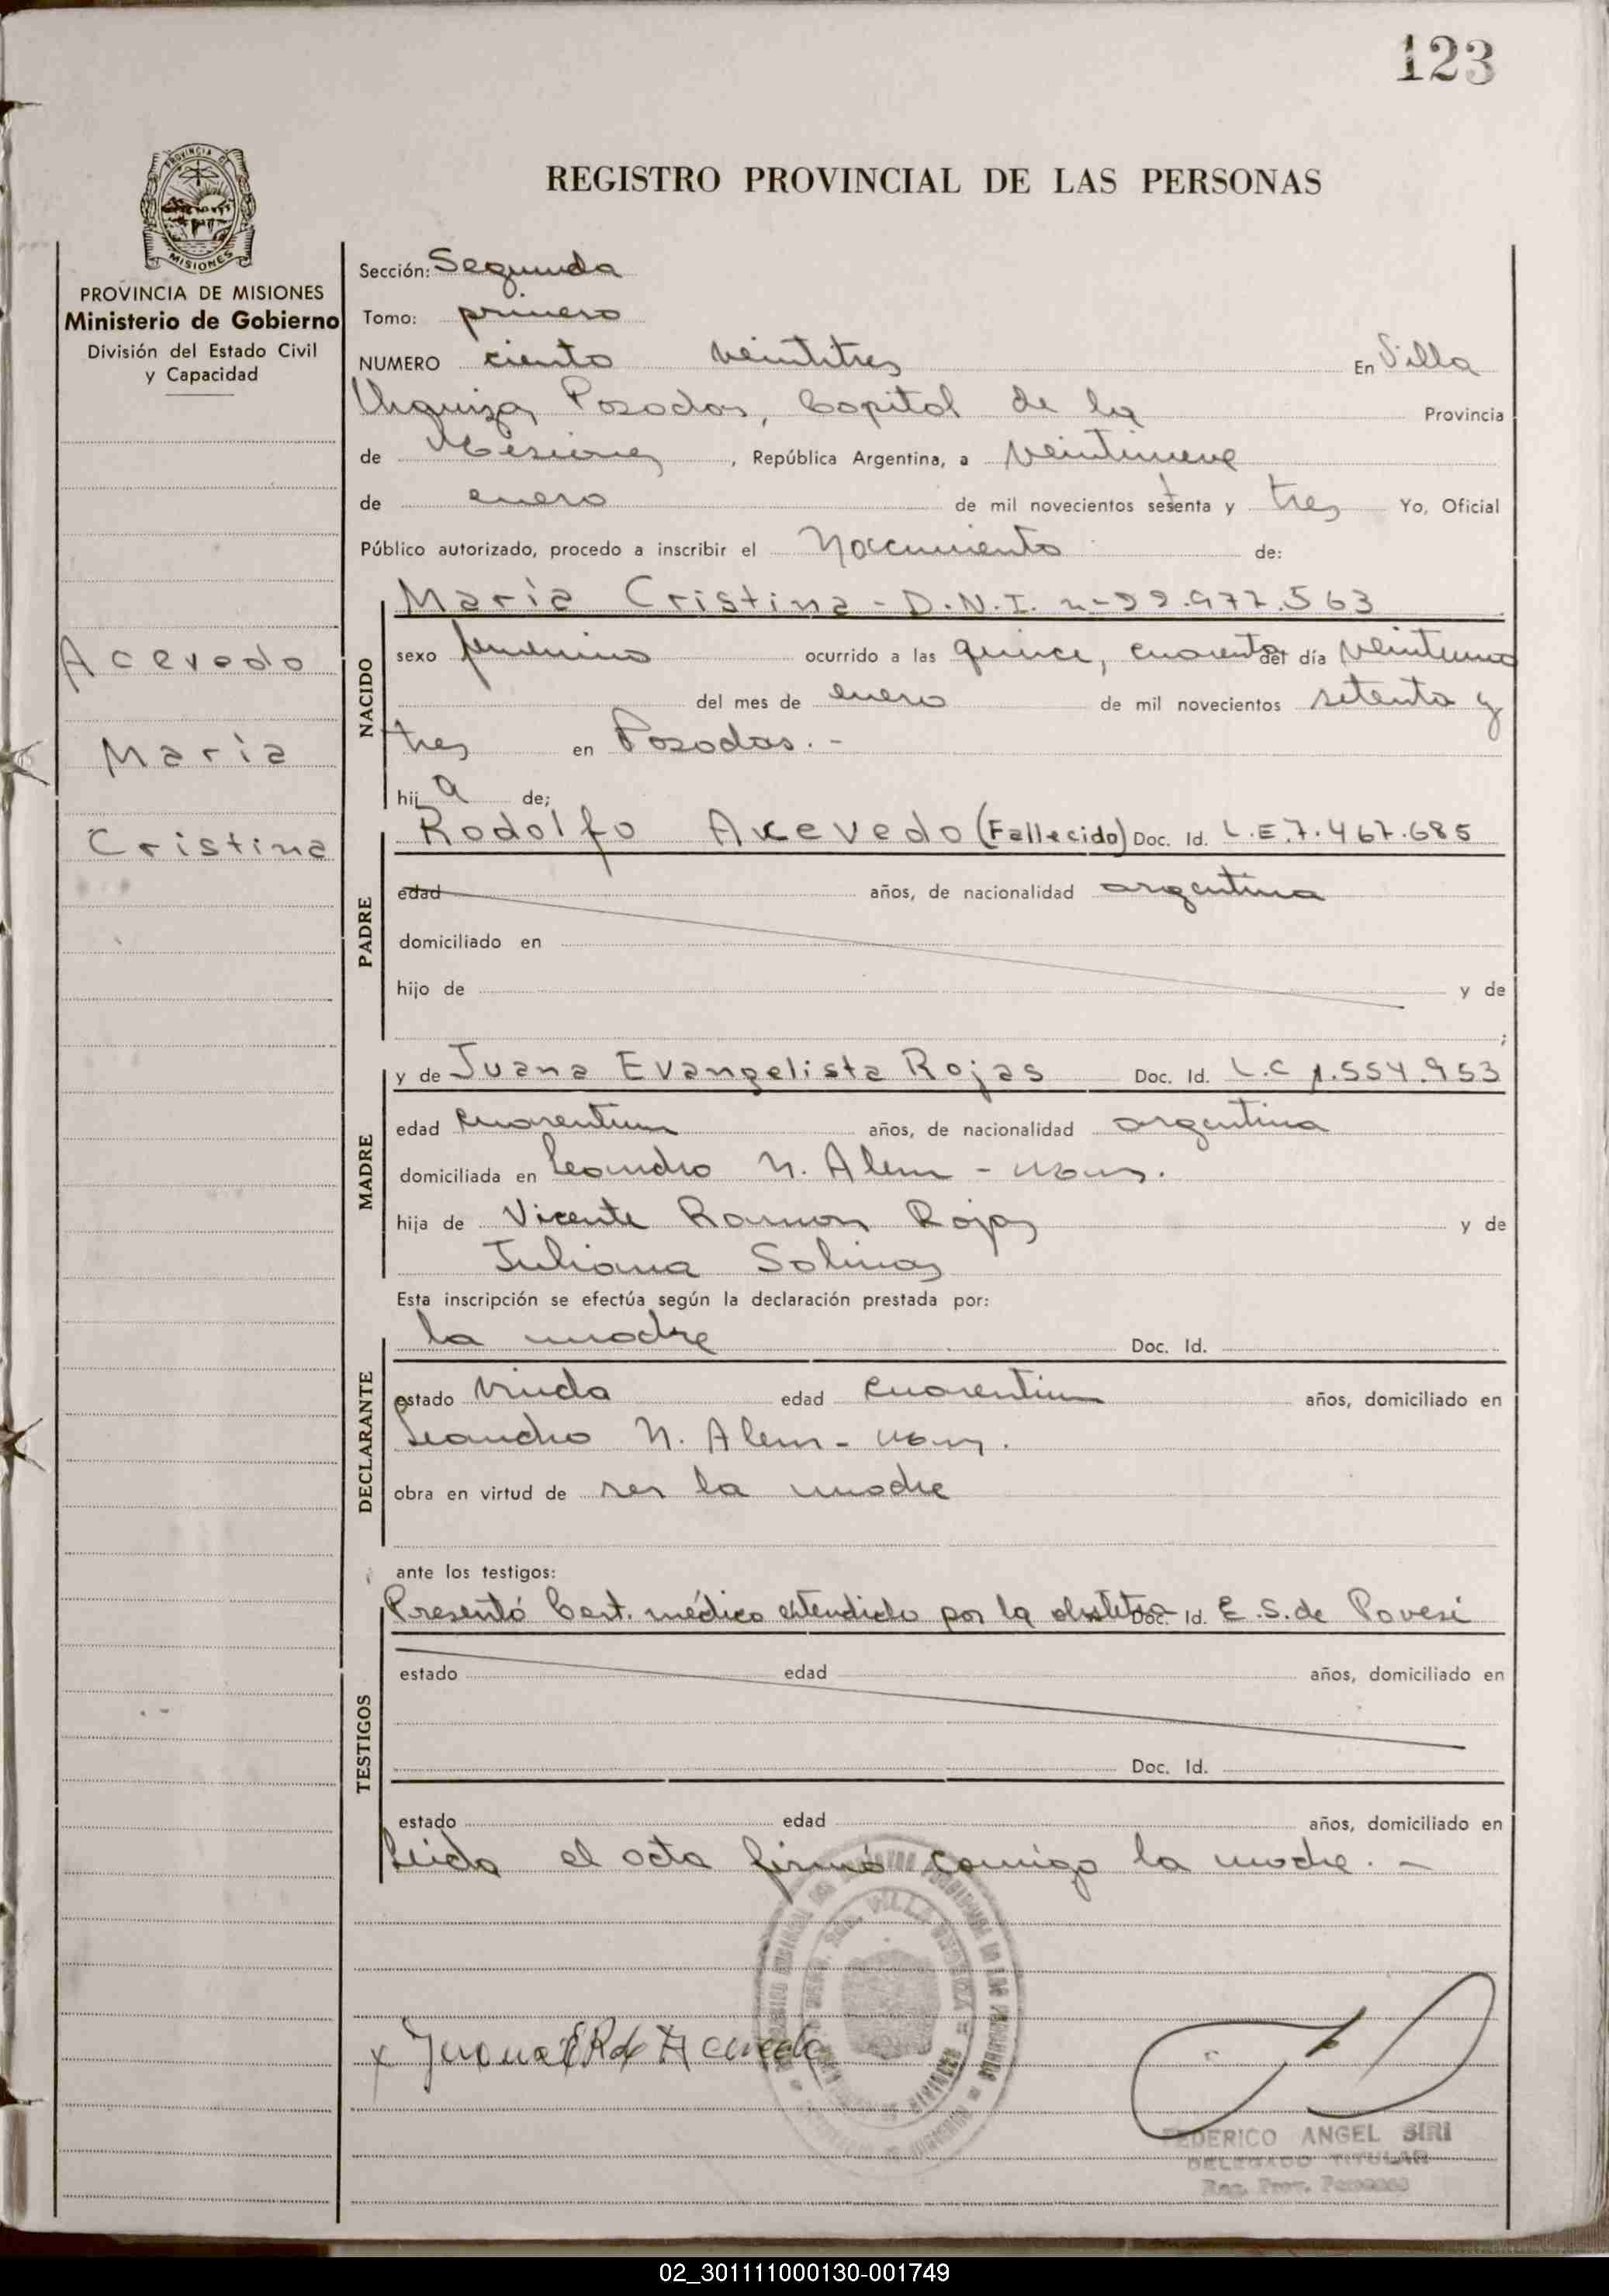 123
PROVINCIA DE
MISIONES
REGISTRO PROVINCIAL DE LAS PERSONAS
PROVINCIA DE MISIONES
Ministerio de Gobierno
División del Estado Civil
y Capacidad
Acevedo
María
Cristina
Sección: Segunda
Tomo: primero
NUMERO ciento veintitres En Villa
Urquiza, Posadas, Capital de la Provincia
de Misiones, República Argentina, a veintinueve
de enero de mil novecientos setenta y tres Yo, Oficial
Público autorizado, procedo a inscribir el Nacimiento de:
NACIDO
María Cristina - D.N.I. n- 22.972.563
sexo femenino ocurrido a las quince, cuarenta del día veintiuno
del mes de enero de mil novecientos setenta y
tres en Posadas. -
hij a de;
PADRE
Rodolfo Acevedo (Fallecido) Doc. Id. L.E.7.467.685
edad años, de nacionalidad argentina
domiciliado en
hijo de y de
;
MADRE
y de Juana Evangelista Rojas Doc. Id. L.C 1.554.953
edad cuarentiun años, de nacionalidad argentina
domiciliada en Leandro N. Alem -
hija de Vicente Ramon Rojas y de
Juliana Salinas
Esta inscripción se efectúa según la declaración prestada por:
DECLARANTE
la madre Doc. Id.
estado viuda edad cuarentiun años, domiciliado en
Leandro N. Alem -
obra en virtud de ser la madre
ante los testigos:
TESTIGOS
Presentó Cert. médico extendido por la obstetra Doc. Id. E.S. de Povesi
estado edad años, domiciliado en
Doc. Id.
estado edad años, domiciliado en
Leida el acta firmó conmigo la madre. -
VILLA URQUIZA
x Juana E R de Acevedo
FEDERICO ANGEL SIRI
DELEGADO TITULAR
Reg. Prov. Personas
02_301111000130-001749